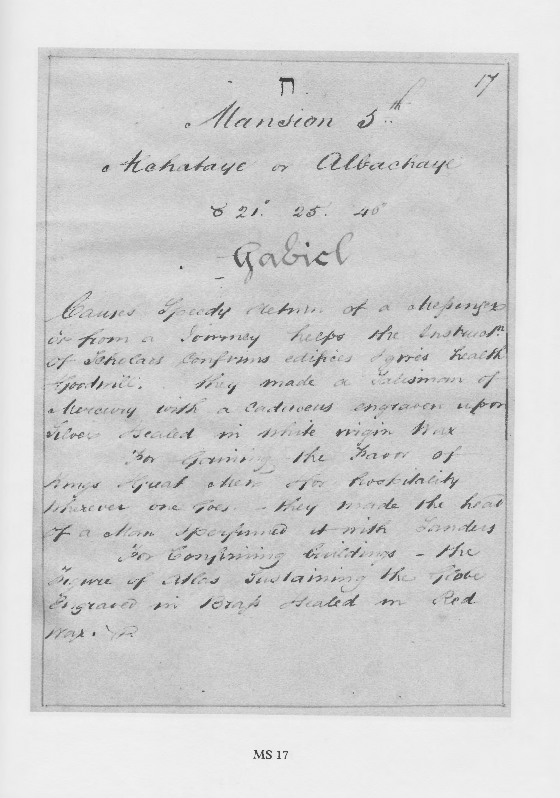 ח 17
Mansion 5th
Alchataye or Albachaye
♉ 21° 25' 40"
Gabiel
Causes Speedy Return of a Messenger
or from a Journey helps the Instruct.n
of Scholars Confirms edifices gives health
Goodwill. They made a Talisman of
Mercury with a Caduceus engraven upon
Silver Sealed in white virgin Wax
For Gaining the Favor of
Kings Great Men & for hospitality
wherever one goes - they made the head
of a Man & perfumed it with Sanders
For Confirming buildings - the
Figure of Atlas Sustaining the Globe
Engraved in Brass Sealed in Red
Wax.
MS 17